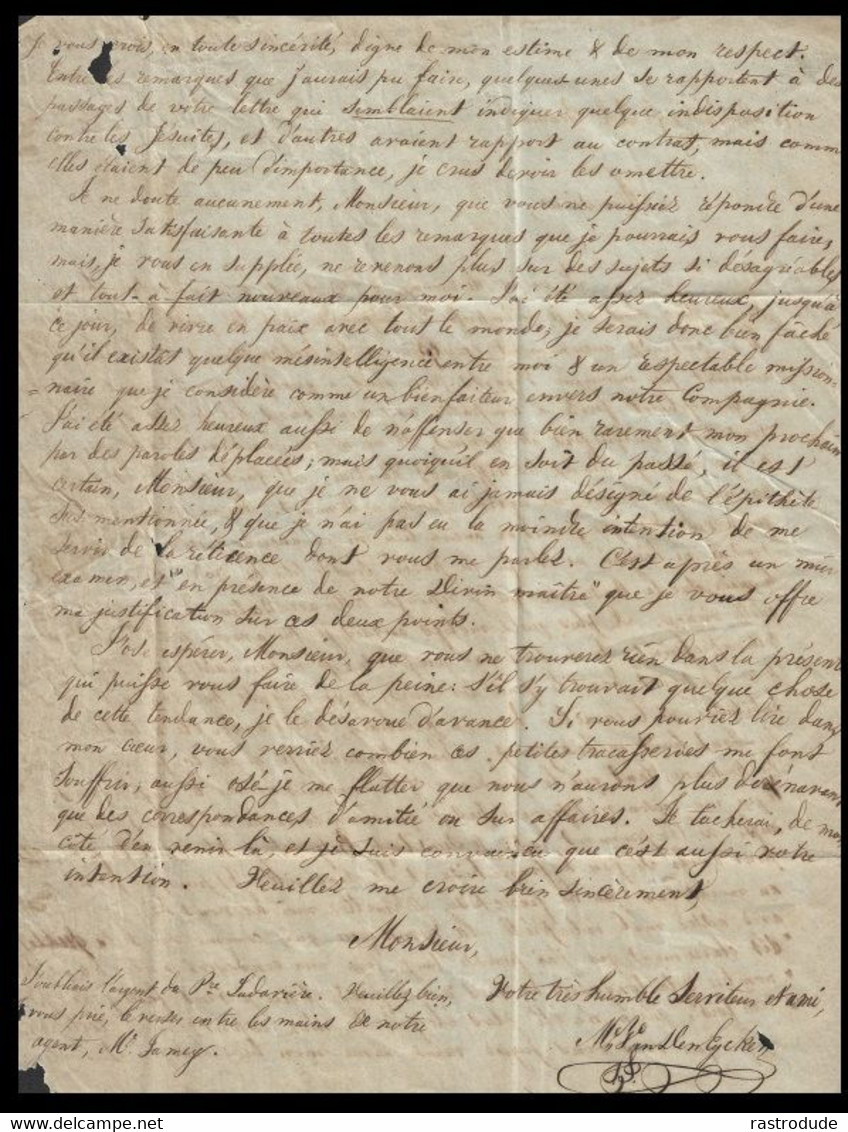 Je vous crois, en toute sincérité, digne de mon estime & de mon respect.
Entre les remarques que j'aurais pu faire, quelques-unes se rapportent à des
passages de votre lettre qui semblaient indiquer quelque indisposition
contre les Jésuites, et d'autres avaient rapport au contrat, mais comm
elles étaient de peu d'importance, je crus devoir les omettre.
Je ne doute aucunement, Monsieur, que vous ne puissiez répondre d'une
manière satisfaisante à toutes les remarques que je pourrais vous faire,
mais, je vous en supplie, ne revenons plus sur des sujets si désagréables
et tout-à-fait nouveaux pour moi. J'ai été assez heureux, jusqu'à
ce jour, de vivre en paix avec tout le monde; je serais donc bien fâché
qu'il existât quelque mésintelligence entre moi & un respectable mission-
=naire que je considère comme un bienfaiteur envers notre Compagnie.
J'ai été assez heureux aussi de n'offenser que bien rarement mon prochain
par des paroles déplacées; mais quoiqu'il en soit du passé, il est
certain, Monsieur, que je ne vous ai jamais désigné de l'épithète
sus mentionnée, & que je n'ai pas eu la moindre intention de me
servir de la réticence dont vous me parlez. C'est après un mûr
examen, et "en présence de notre Divin maître" que je vous offre
ma justification sur ces deux points.
J'ose espérer, Monsieur, que vous ne trouverez rien dans la présent
qui puisse vous faire de la peine: s'il s'y trouvait quelque chose
de cette tendance, je le désavoue d'avance. Si vous pouviez lire dans
mon cœur, vous verriez combien ces petites tracasseries me font
souffrir; aussi osé-je me flatter que nous n'aurons plus dorénavant
que des correspondances d'amitié ou sur affaires. Je tacherai, de mon
côté d'en venir là, et je suis convaincu que c'est aussi votre
intention. Veuillez me croire bien sincèrement,
Monsieur,
Votre très humble Serviteur & ami,
J. Van Den Eycken
S.J.
J'oubliais l'argent du Pre Ladavière. Veuillez bien,
vous prie, le verser entre les mains de notre
agent, Mr Jamey.
rastrodude